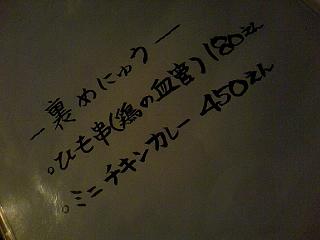 ー裏めにゅうー
。ひも串(鶏の血管)180えん
。ミニチキンカレー 450えん